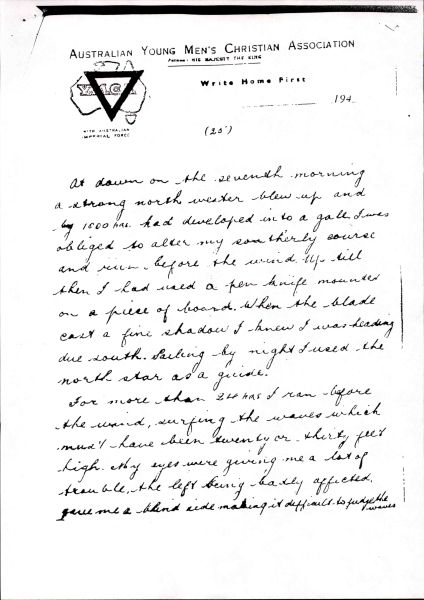 AUSTRALIAN YOUNG MEN'S CHRISTIAN ASSOCIATION
PATRON: HIS MAJESTY THE KING
Y.M.C.A
WITH AUSTRALIAN
IMPERIAL FORCE
Write Home First
194
(25)
At dawn on the seventh morning
a strong north wester blew up and
by 1000 hrs. had developed into a gale. I was
obliged to alter my southerly course
and run before the wind. Up till
then I had used a pen knife mounted
on a piece of board. When the blade
cast a fine shadow I knew I was heading
due south. Sailing by night I used the
north star as a guide.
For more than 24 hrs I ran before
the wind, surfing the waves which
must have been twenty or thirty feet
high. My eyes were giving me a lot of
trouble, the left being badly affected.
gave me a blind side making it difficult to judge the
waves